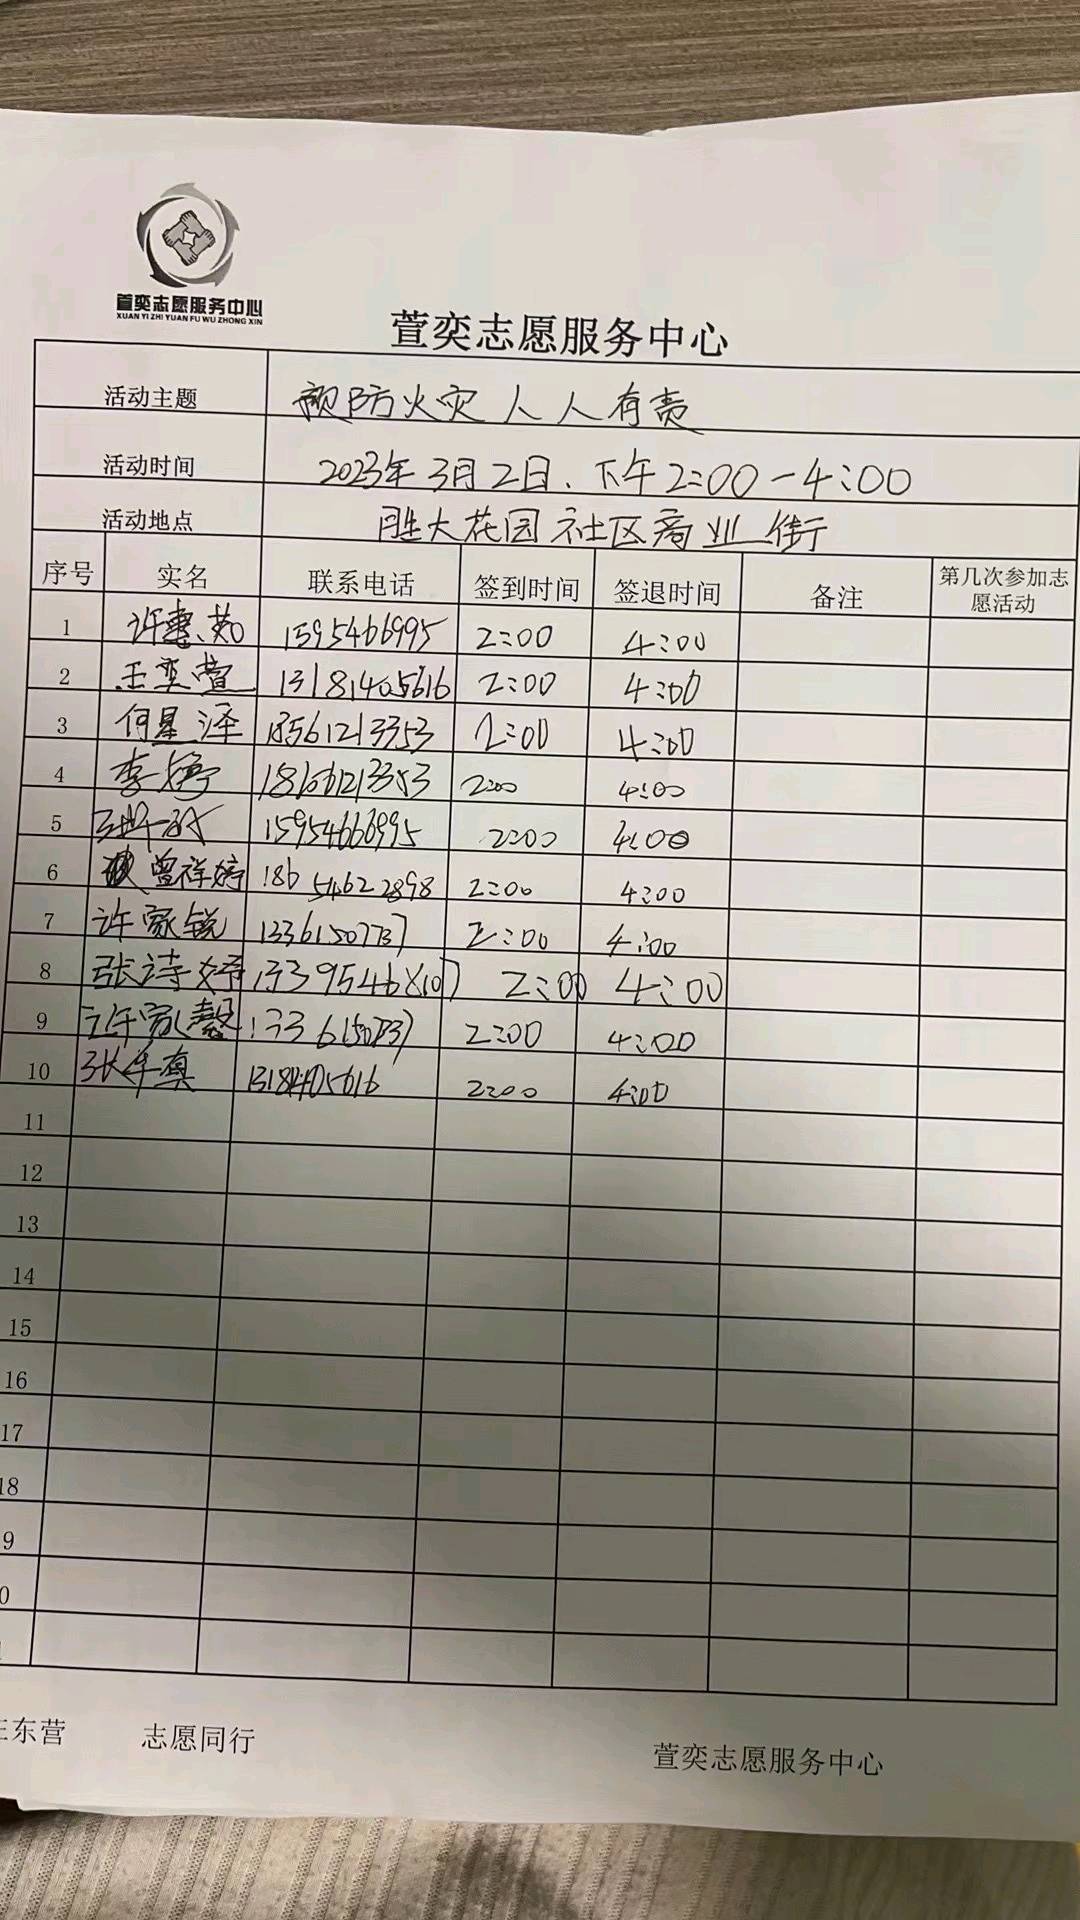 萱奕志愿服务中心
XUAN YI ZHI YUAN FU WU ZHONG XIN
萱奕志愿服务中心
活动主题 预防火灾人人有责
活动时间 2023年3月2日.下午2:00-4:00
活动地点 胜大花园社区商业街
序号 实名 联系电话 签到时间 签退时间 备注 第几次参加志愿活动
1 许惠茹 15954666995 2:00 4:00
2 王奕萱 13181405616 2:00 4:00
3 何星泽 18561213353 2:00 4:00
4 李婷 2:00 4:00
5 15954666995 2:00 4:00
6 曾祥婷 18654622898 2:00 4:00
7 许家锐 13361507737 2:00 4:00
8 张诗婷 2:00 4:00
9 许家馨 2:00 4:00
10 2:00 4:00
11
12
13
14
15
16
17
18
9
0
东营 志愿同行 萱奕志愿服务中心